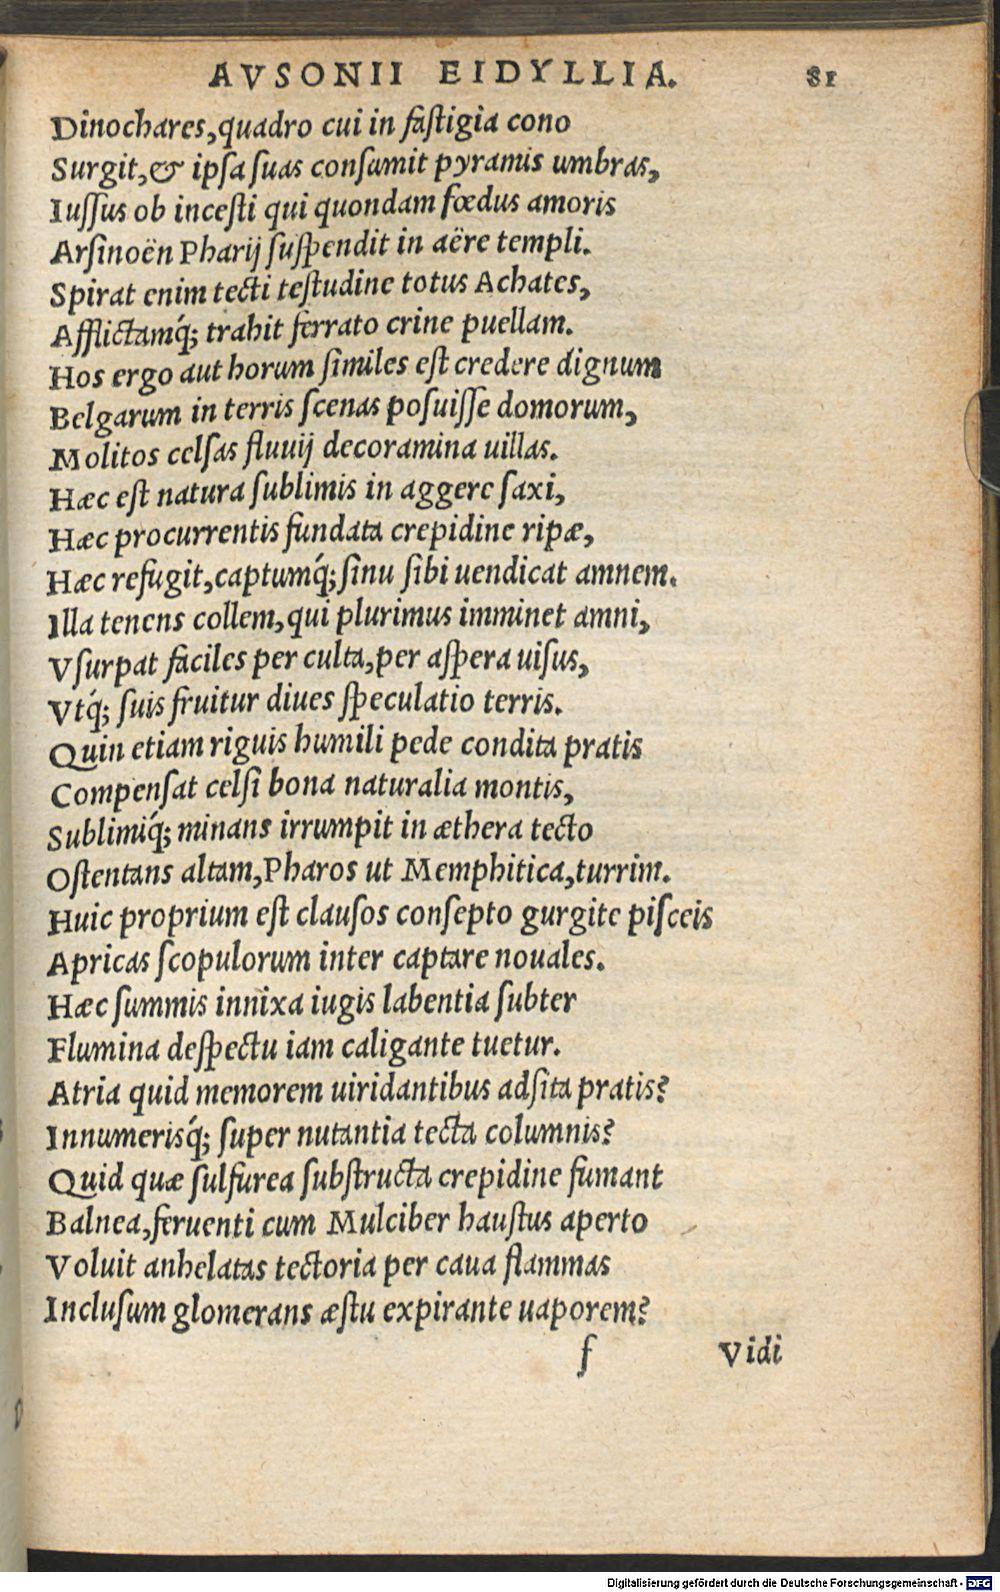 AVSONII EIDYLLIA. 81
Dinochares, quadro cui in fastigia cono
Surgit, & ipsa suas consumit pyramis umbras,
Iussus ob incesti qui quondam fœdus amoris
Arsinoën Pharij suspendit in aëre templi.
Spirat enim tecti testudine totus Achates,
Afflictamq́; trahit ferrato crine puellam.
Hos ergo aut horum similes est credere dignum
Belgarum in terris scenas posuisse domorum,
Molitos celsas fluuij decoramina uillas.
Hæc est natura sublimis in aggere saxi,
Hæc procurrentis fundata crepidine ripæ,
Hæc refugit, captumq́; sinu sibi uendicat amnem.
Illa tenens collem, qui plurimus imminet amni,
Vsurpat faciles per culta, per aspera uisus,
Vtq́; suis fruitur diues speculatio terris.
Quin etiam riguis humili pede condita pratis
Compensat celsi bona naturalia montis,
Sublimiq́; minans irrumpit in æthera tecto
Ostentans altam, Pharos ut Memphitica, turrim.
Huic proprium est clausos consepto gurgite pisceis
Apricas scopulorum inter captare nouales.
Hæc summis innixa iugis labentia subter
Flumina despectu iam caligante tuetur.
Atria quid memorem uiridantibus adsita pratis?
Innumerisq́; super nutantia tecta columnis?
Quid quæ sulfurea substructa crepidine fumant
Balnea, feruenti cum Mulciber haustus aperto
Voluit anhelatas tectoria per caua flammas
Inclusum glomerans æstu expirante uaporem?
f Vidi
Digitalisierung gefördert durch die Deutsche Forschungsgemeinschaft - DFG